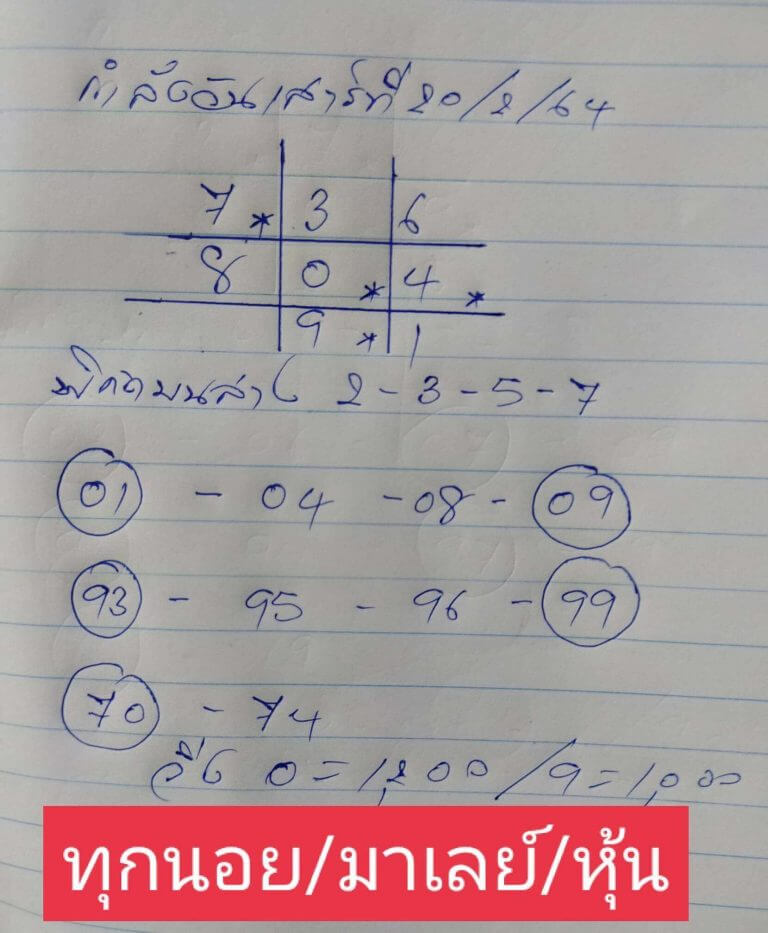 กำลังวันเสาร์ที่ 20/2/64
7 * 3 6
8 0 * 4 *
9 * 1
บนล่าง 2-3-5-7
01 - 04 - 08 - 09
93 - 95 - 96 - 99
70 - 74
วิ่ง 0=1,200/9=1,000
ทุกนอย/มาเลย์/หุ้น